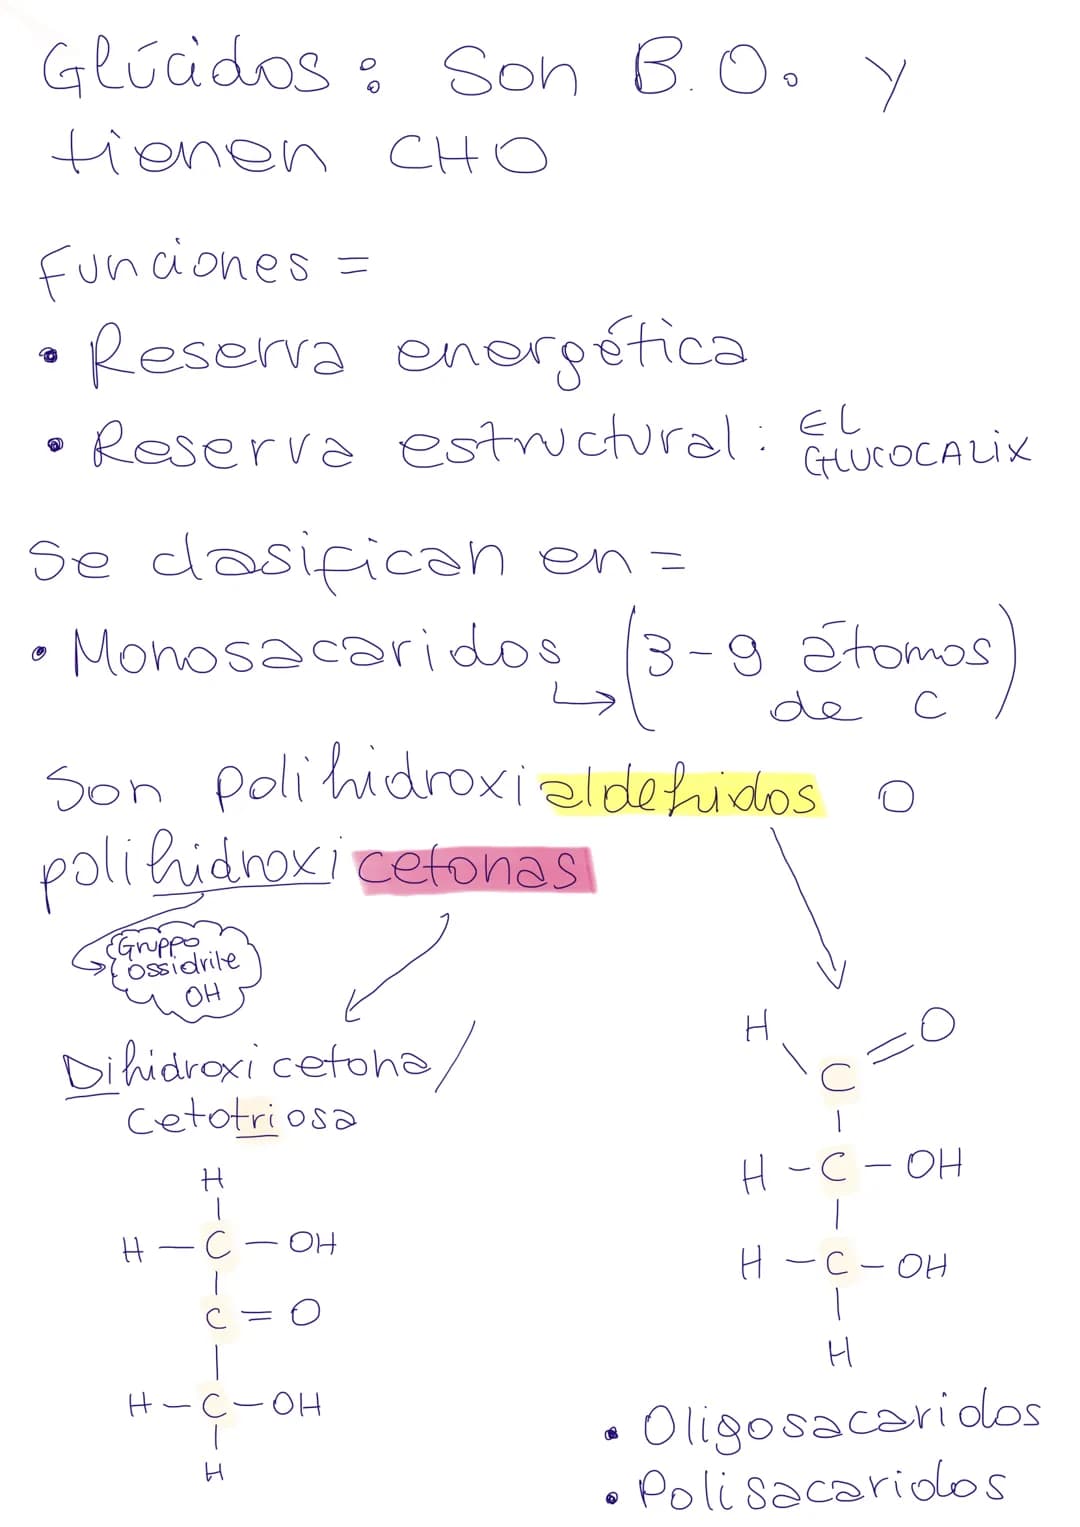 Glúcidos: Son B.O. y
tienen CHO
Funciones =
• Reserva energética
• Reserva estructural: EL
GLUCOCALIX
Se clasifican en =
• Monosacaridos ↳ (3-9 átomos
de C)
Son polihidroxialdehidos o
polihidroxicetonas
Gruppo
ossidrile
OH
Dihidroxicetona/
Cetotriosa
H
H - C - OH
C = O
H - C - OH
H
H O
C
H - C - OH
H - C - OH
H
• Oligosacaridos
• Polisacaridos